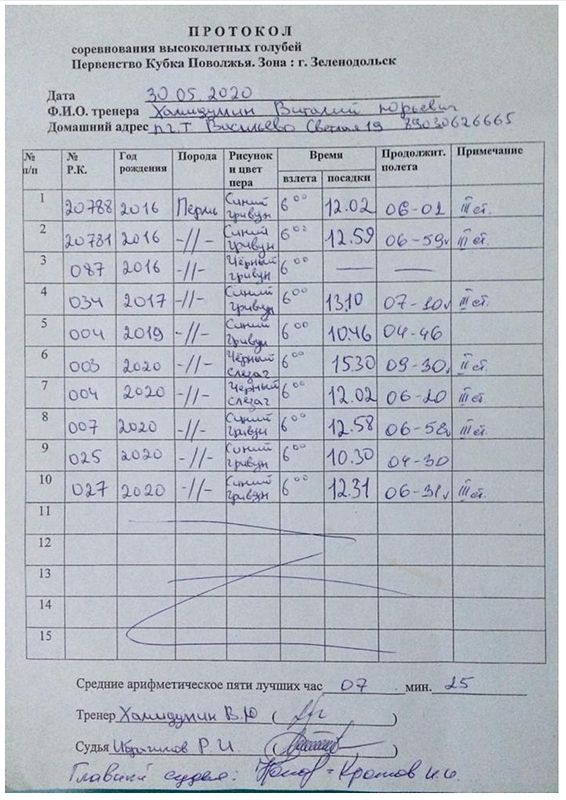 ПРОТОКОЛ
соревнования высоколетных голубей
Первенство Кубка Поволжья. Зона : г. Зеленодольск
Дата 30.05.2020
Ф.И.О. тренера Халидулин Виталий Юрьевич
Домашний адрес п.г.т Васильево Светлая 19 89030626665
№ п/п № Р.К. Год рождения Порода Рисунок и цвет пера Время взлета посадки Продолжит. полета Примечание
1 20788 2016 Пермь Синий гривун 6 00 12.02 06-02 III ст.
2 20781 2016 -//- Синий гривун 6 00 12.59 06-59 III ст.
3 087 2016 -//- Чёрный гривун 6 00 — —
4 034 2017 -//- Синий гривун 6 00 13.10 07-10 III ст.
5 004 2019 -//- Синий гривун 6 00 10.46 04-46
6 003 2020 -//- Чёрный слезач 6 00 15.30 09-30 II ст.
7 004 2020 -//- Чёрный слезач 6 00 12.02 06-20 III ст.
8 007 2020 -//- Синий гривун 6 00 12.58 06-58 III ст.
9 025 2020 -//- Синий гривун 6 00 10.30 04-30
10 027 2020 -//- Синий гривун 6 00 12.31 06-31 III ст.
11
12
13
14
15
Средние арифметическое пяти лучших час 07 мин. 25
Тренер Халидулин В.Ю ( )
Судья Р.И. ( )
Главный судья: Кротов И.И.